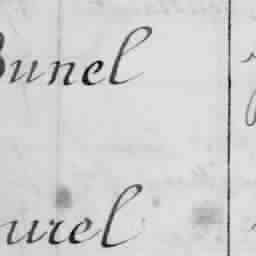 Bunel
urel